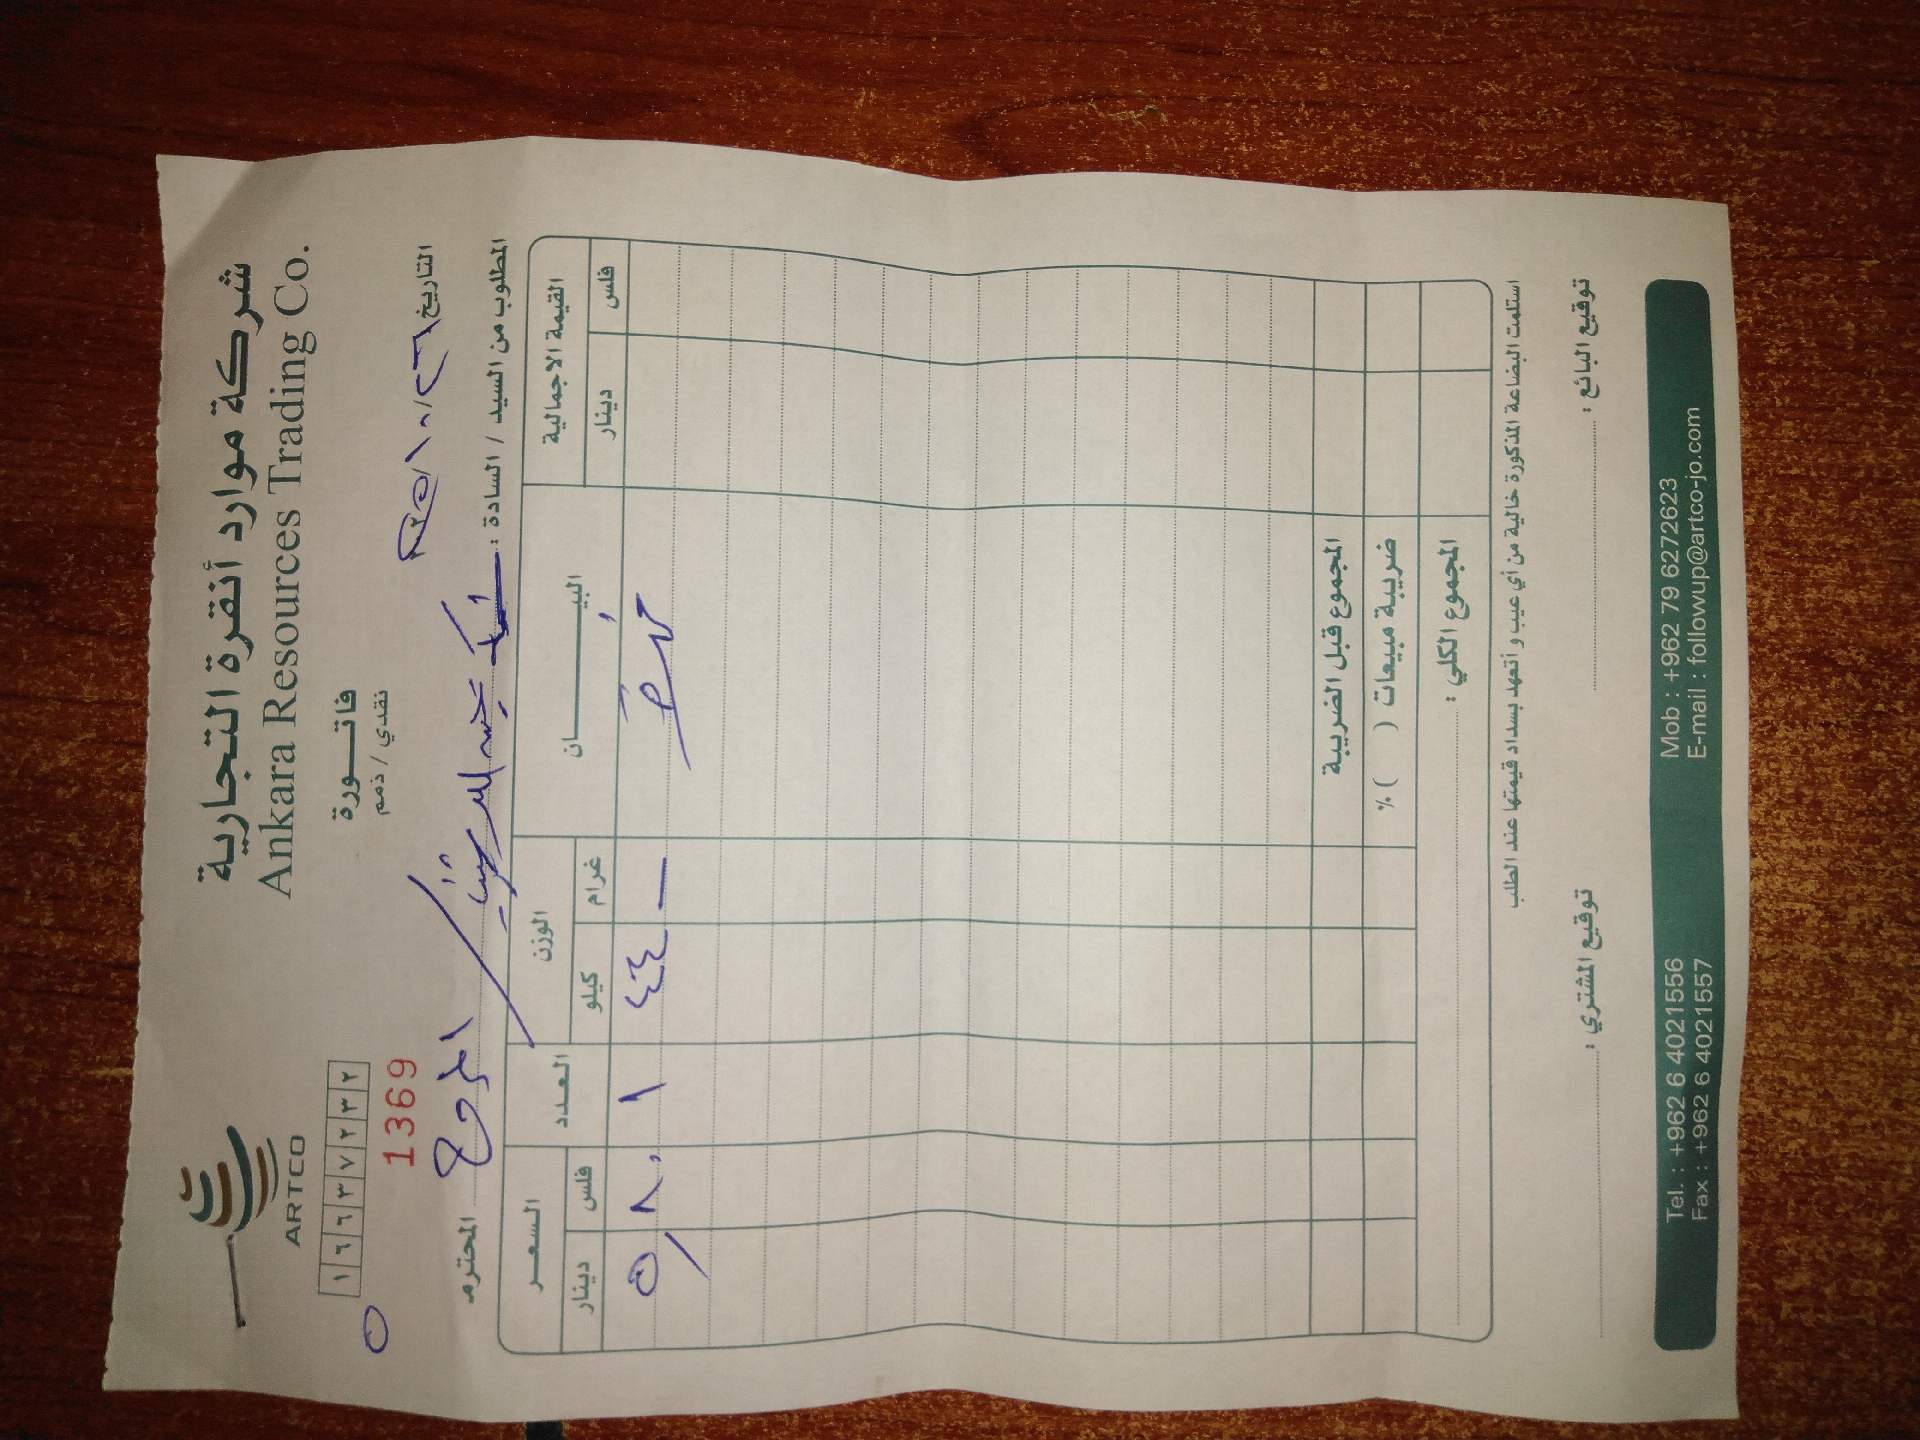 شركة موارد أنقرة التجارية
Ankara Resources Trading Co.
ARTCO
فاتـــورة
نقدي / ذمم
١٦٦٣٧٢٣٢
1369
٥
التاريخ
المطلوب من السيد / السادة : المحترم
القيمة الاجمالية البيـــــان الوزن العدد السعـر
فلس دينار غرام كيلو فلس دينار
- ٤٤ ١ ٥,٨٠
المجموع قبل الضريبة
ضريبة مبيعات ( ) %
المجموع الكلي :
استلمت البضاعة المذكورة خالية من أي عيب و أتعهد بسداد قيمتها عند الطلب
توقيع البائع : توقيع المشتري :
Tel. : +962 6 4021556 Mob : +962 79 6272623
Fax : +962 6 4021557 E-mail : followup@artco-jo.com